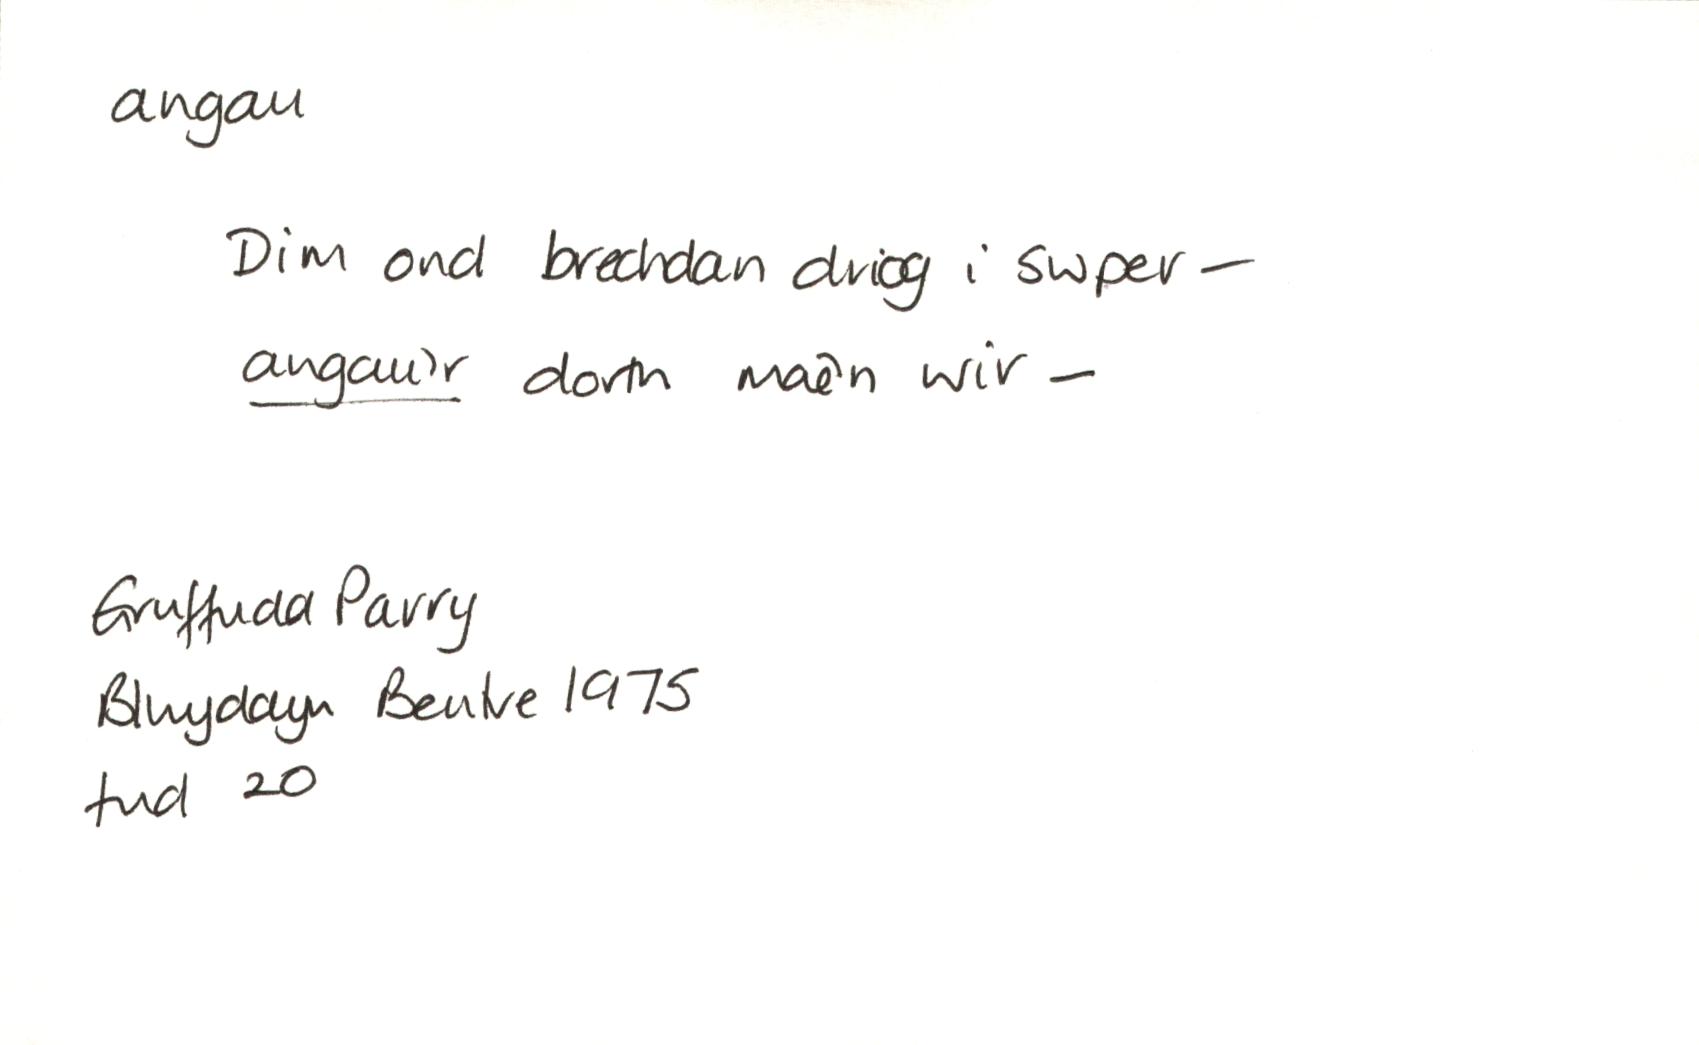 angau
Dim ond brechdan driog i swper –
angau'r dorth mae'n wir –
Gruffudd Parry
Blwyddyn Bentre 1975
tud 20